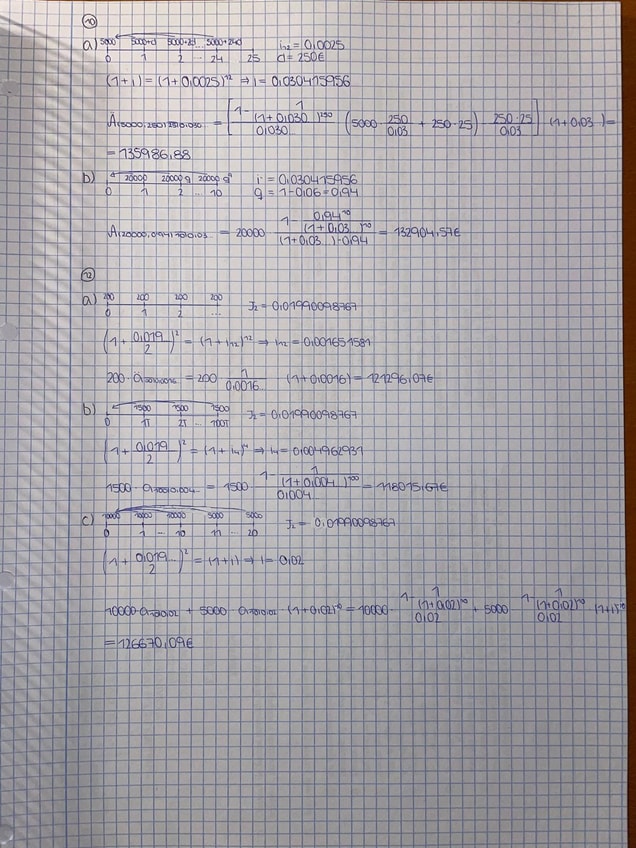 10
a) 5000 5000+d 5000+2d 5000+24d i12 = 0,0025
0 1 2 ... 24 25 d = 250€
(1+i) = (1+0,0025)^12 ⇒ i = 0,030415956
A(5000,250)25|0,030 = [ (1 - 1/(1+0,030)^250)/0,030 (5000 + 250/0,03 + 250·25) - 250·25/0,03 ] (1+0,03) =
= 135986,88
b) 20000 20000q 20000q^9 i = 0,030415956
0 1 2 ... 10 q = 1-0,06 = 0,94
A(20000,0,94)10|0,03 = 20000 · (1 - 0,94^10/(1+0,03)^10)/((1+0,03)-0,94) = 132904,57€
12
a) 200 200 200 200 J2 = 0,01990098767
0 1 2 ...
(1 + 0,019.../2)^2 = (1+i12)^12 ⇒ i12 = 0,001651581
200 · ä∞|0,0016 = 200 · 1/0,0016 (1+0,0016) = 121296,07€
b) 1500 1500 1500 J2 = 0,01990098767
0 1T 2T ... 100T
(1 + 0,019/2)^2 = (1+i4)^4 ⇒ i4 = 0,004962931
1500 · a100|0,004 = 1500 · (1 - 1/(1+0,004)^100)/0,004 = 118015,67€
c) 10000 10000 10000 5000 5000 J2 = 0,01990098767
0 1 ... 10 11 ... 20
(1 + 0,019.../2)^2 = (1+i) ⇒ i = 0,02
10000·a10|0,02 + 5000 · a10|0,02 · (1+0,02)^-10 = 10000 · (1 - 1/(1+0,02)^10)/0,02 + 5000 · (1 - 1/(1+0,02)^10)/0,02 · (1+i)^-10
= 126670,09€